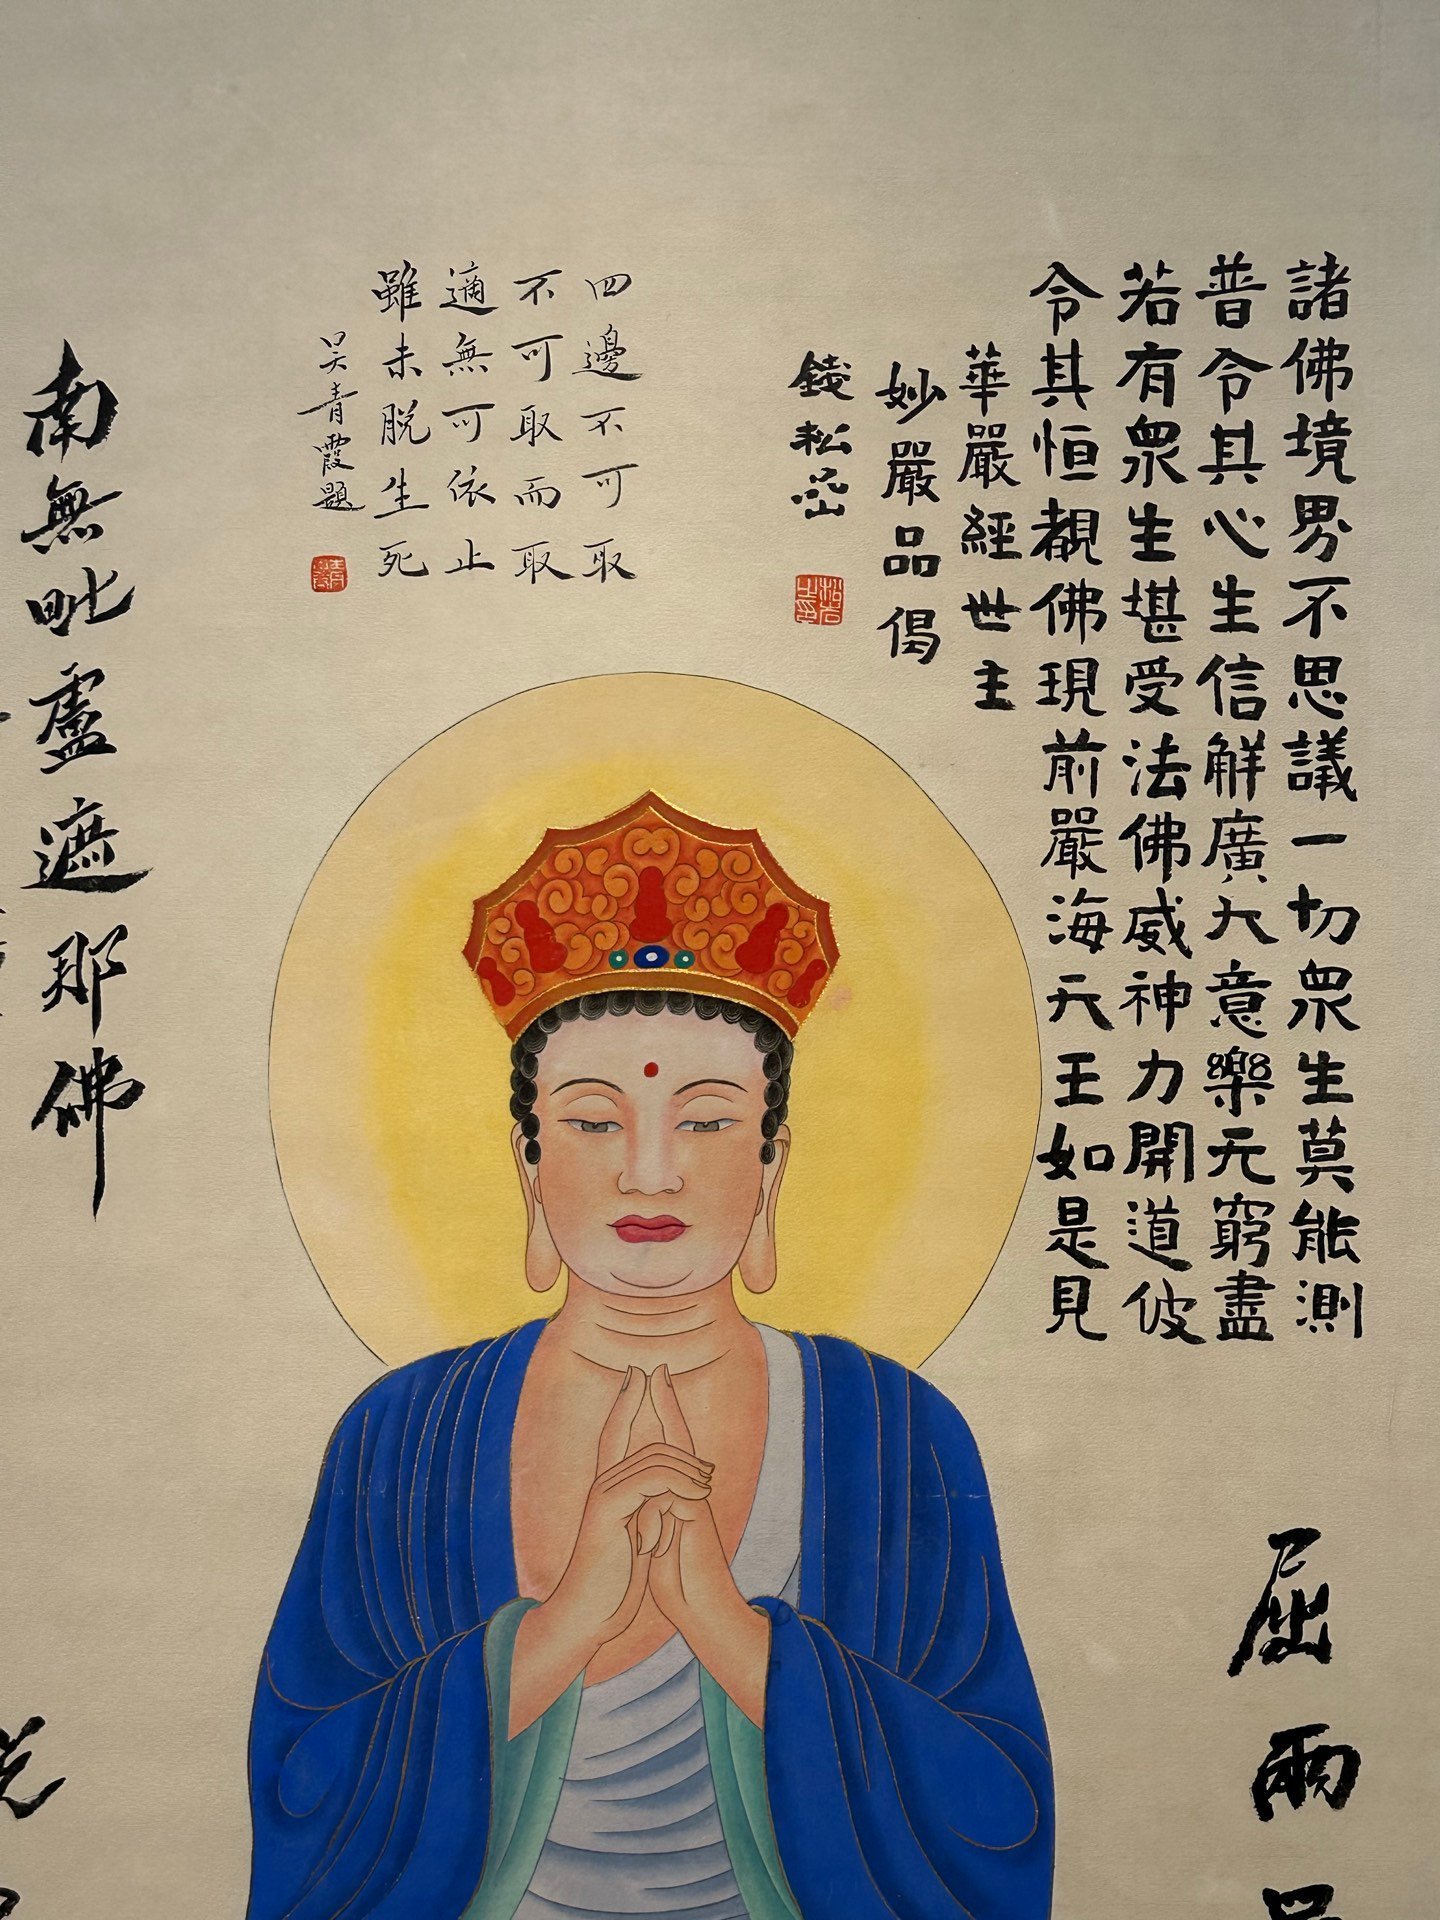 諸佛境界不思議一切眾生莫能測
普令其心生信解廣大意樂无窮盡
若有眾生堪受法佛威神力開道彼
令其恒覩佛現前嚴海天王如是見
華嚴經世主
妙嚴品偈
錢松嵒
四邊不可取
不可取而取
適無可依止
雖未脫生死
吴青霞題
南無毗盧遮那佛
屈雨